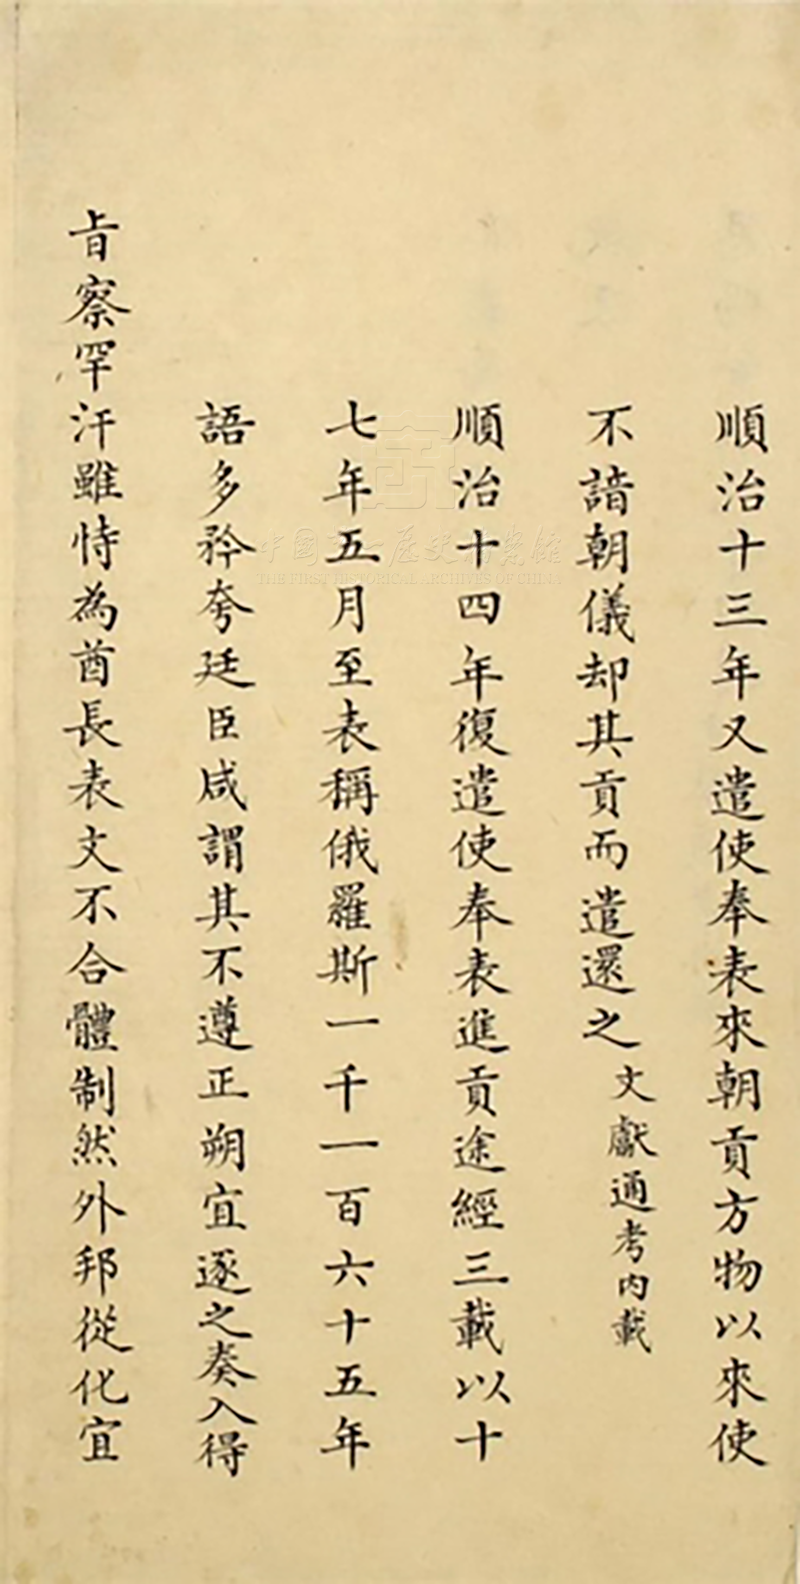 順治十三年又遣使奉表來朝貢方物以來使
不諳朝儀却其貢而遣還之文獻通考内載
順治十四年復遣使奉表進貢途經三載以十
七年五月至表稱俄羅斯一千一百六十五年
語多矜夸廷臣咸謂其不遵正朔宜逐之奏入得
旨察罕汗雖恃為酋長表文不合體制然外邦從化宜
中國第一歷史檔案館
THE FIRST HISTORICAL ARCHIVES OF CHINA